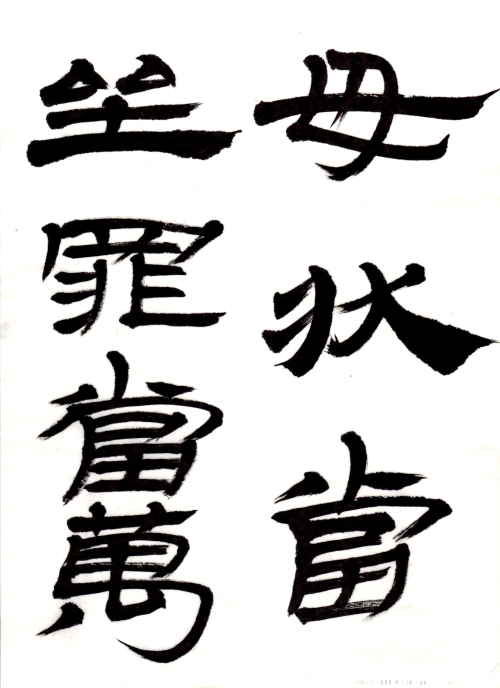 毋状當
坐罪當萬